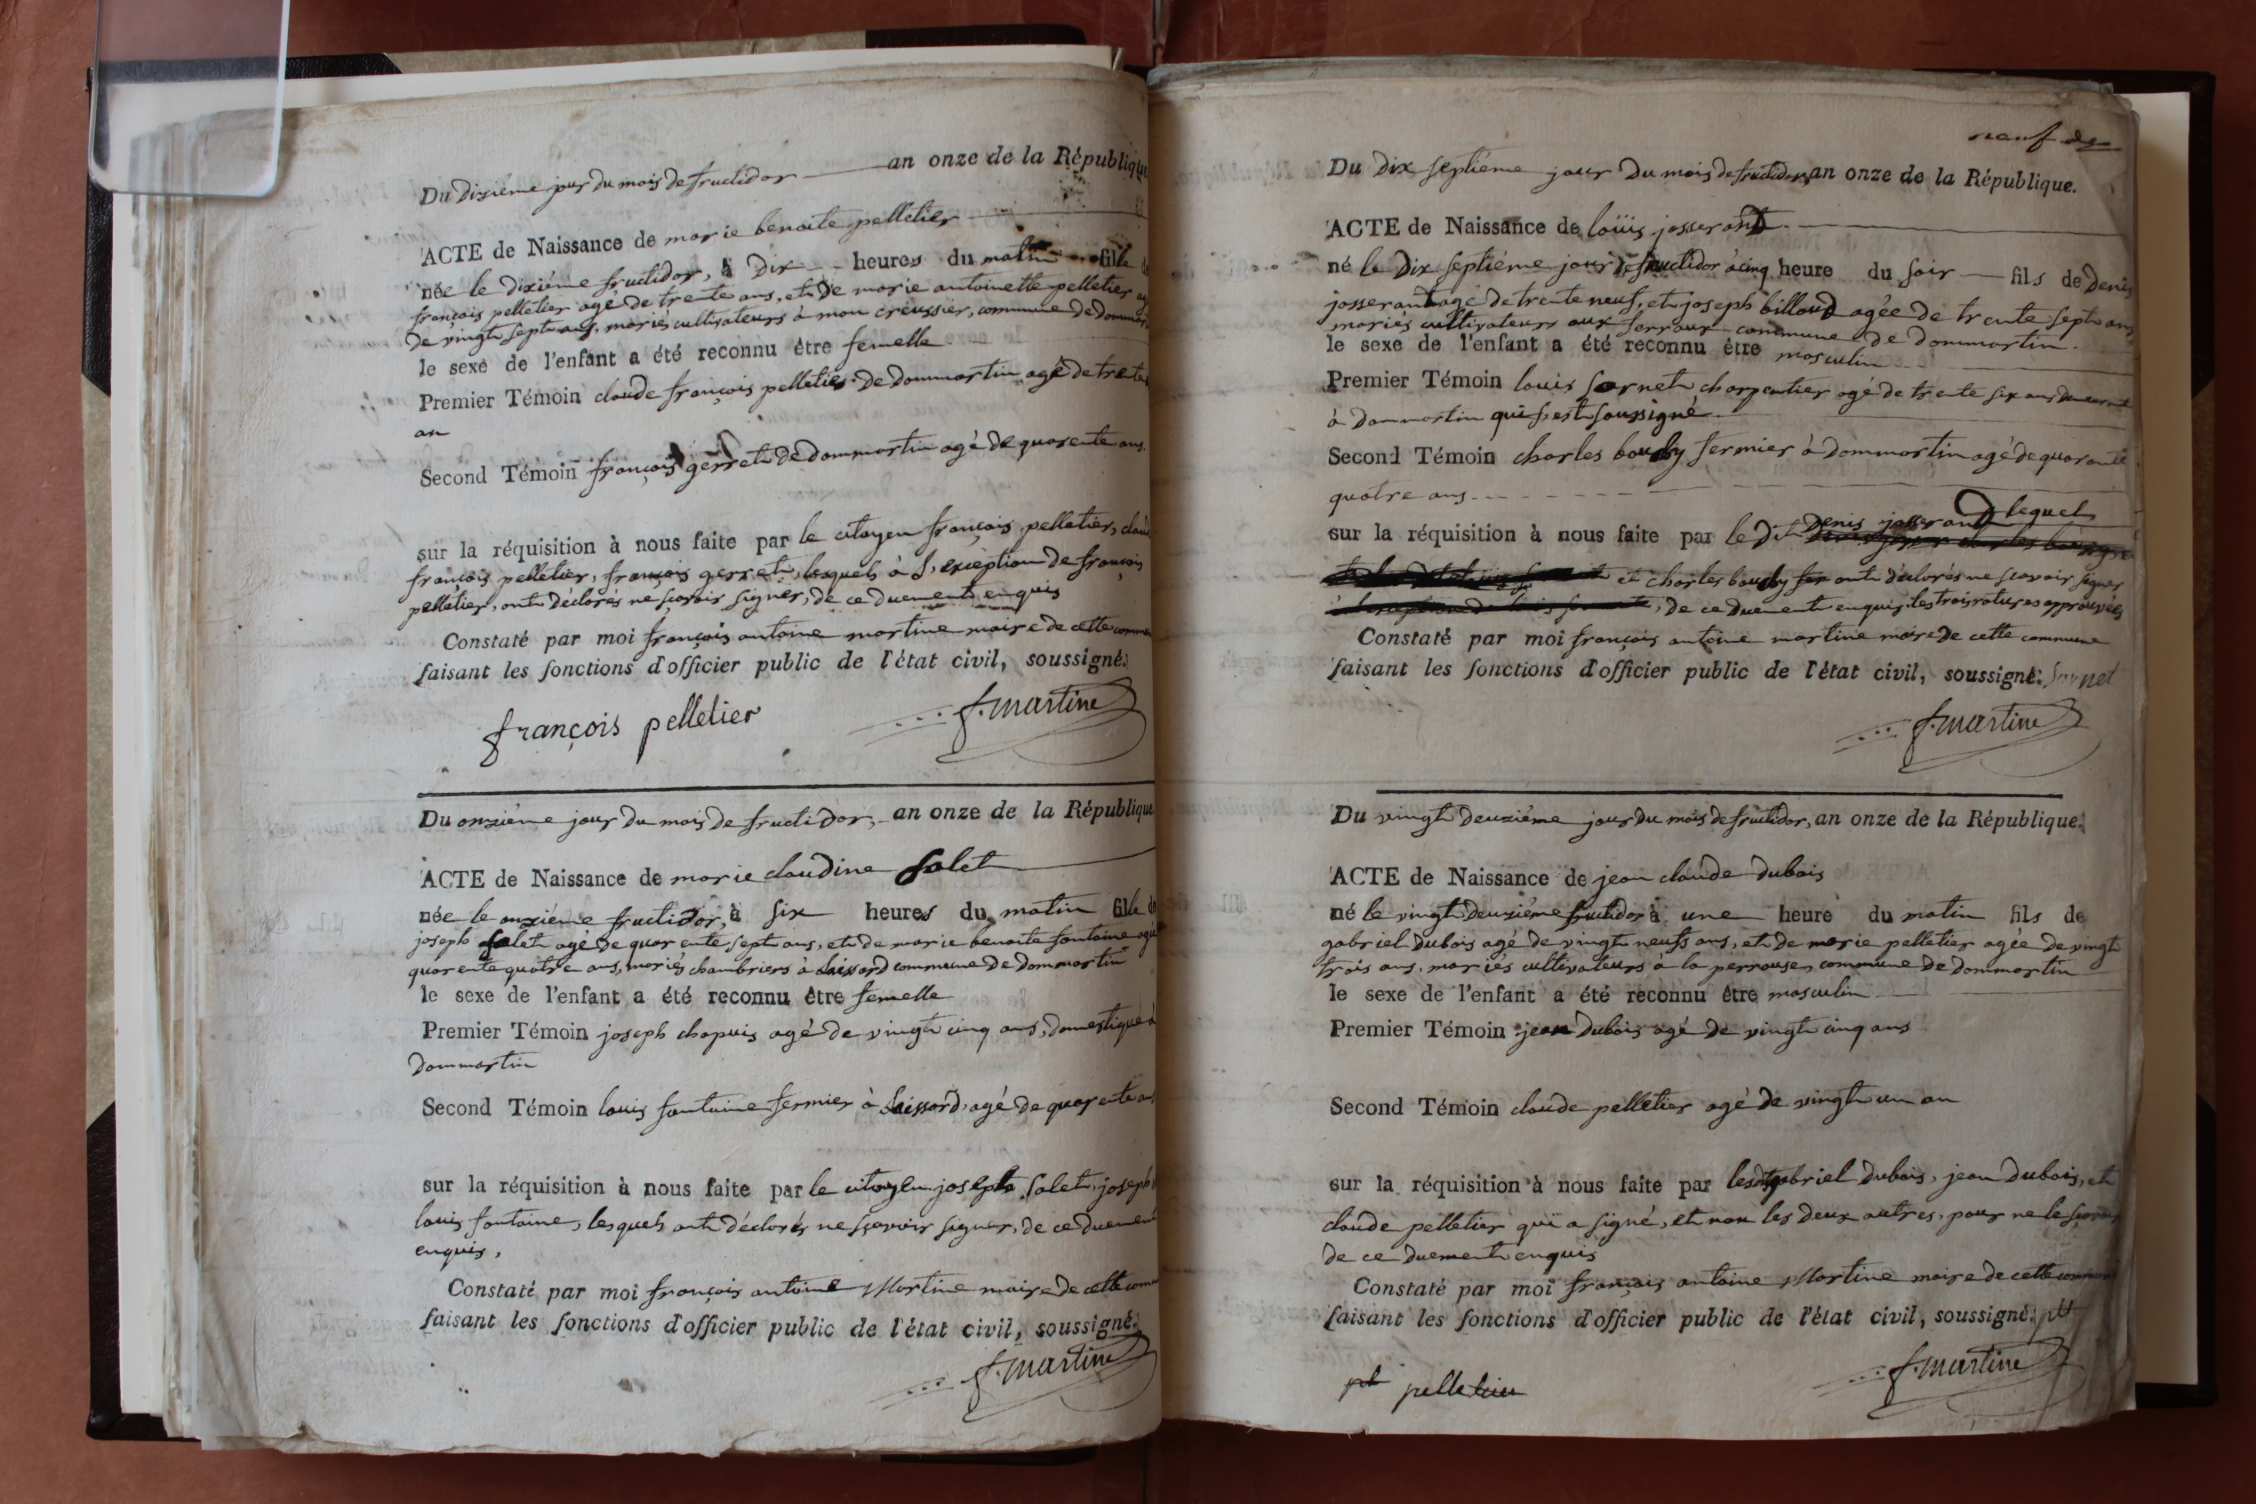 Du dixiéme jour du mois de fructidor an onze de la République
ACTE de Naissance de marie benoite pelletier
née le dixiéme fructidor, à dix heures du matin fille de
françois pelletier agé de trente ans, et de marie antoinette pelletier
de vingt sept ans, mariés cultivateurs à mon creussier, commune de dommar
le sexe de l'enfant a été reconnu être femelle
Premier Témoin claude françois pelletier de dommartin agé de trente
an
Second Témoin françois gerret de dommartin agé de quarente ans.
sur la réquisition à nous faite par le citoyen françois pelletier, claude
françois pelletier, françois gerret, lesquels à l'exception de françois
pelletier, ont déclarés ne sçavoir signer, de ce duement enquis
Constaté par moi françois antoine martine maire de cette commune
faisant les fonctions d'officier public de l'état civil, soussigné.
françois pelletier f. martine
Du onziéme jour du mois de fructidor, an onze de la République
ACTE de Naissance de marie claudine Salet
née le onziéme fructidor, à six heures du matin fille de
joseph Salet agé de quarente sept ans, et de marie benoite fontaine agée
quarente quatre ans, mariés chambriers à Laissard commune de dommartin
le sexe de l'enfant a été reconnu être femelle
Premier Témoin joseph chapuis agé de vingt cinq ans, domestique à
dommartin
Second Témoin louis fontaine fermier à Laissard, agé de quarente ans
sur la réquisition à nous faite par le citoyen joseph Salet, joseph
louis fontaine, lesquels ont déclarés ne sçavoir signer, de ce duement
enquis,
Constaté par moi françois antoine Martine maire de cette comm
faisant les fonctions d'officier public de l'état civil, soussigné.
f. martine
neuf
Du dix septiéme jour du mois de fructidor, an onze de la République.
ACTE de Naissance de loüis josserand
né le dix septiéme jour de fructidor à cinq heure du soir fils de denis
josserand agé de trente neuf, et joseph billoud agée de trente sept ans
mariés cultivateurs aux serraux commune de dommartin.
le sexe de l'enfant a été reconnu être masculin
Premier Témoin louis Sarnet charpentier agé de trente six ans demeurant
à dommartin qui s'est soussigné
Second Témoin charles bouchy fermier à dommartin agé de quarante
quatre ans
denis josserand lequel
sur la réquisition à nous faite par le dit
et charles bouchy ont déclarés ne sçavoir signer
, de ce duement enquis, les trois ratures approuvées
Constaté par moi françois antoine martine maire de cette commune
faisant les fonctions d'officier public de l'état civil, soussigné. Sarnet
f. martine
Du vingt deuxiéme jour du mois de fructidor, an onze de la République.
ACTE de Naissance de jean claude dubois
né le vingt deuxiéme fructidor à une heure du matin fils de
gabriel dubois agé de vingt neufs ans, et de marie pelletier agée de vingt
trois ans, mariés cultivateurs à la perrouse, commune de dommartin
le sexe de l'enfant a été reconnu être masculin
Premier Témoin jean dubois agé de vingt cinq ans
Second Témoin claude pelletier agé de vingt un an
sur la réquisition à nous faite par lesdt gabriel dubois, jean dubois, et
claude pelletier qui a signé, et non les deux autres, pour ne le sçavoir
de ce duement enquis
Constaté par moi françois antoine Martine maire de cette commune
faisant les fonctions d'officier public de l'état civil, soussigné.
pelletier f. martine